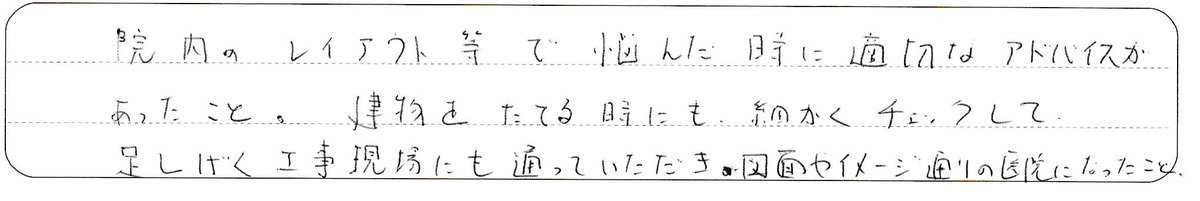 院内のレイアウト等で悩んだ時に適切なアドバイスが
あったこと。建物をたてる時にも、細かくチェックして
足しげく工事現場にも通っていただき。図面やイメージ通りの医院になったこと。